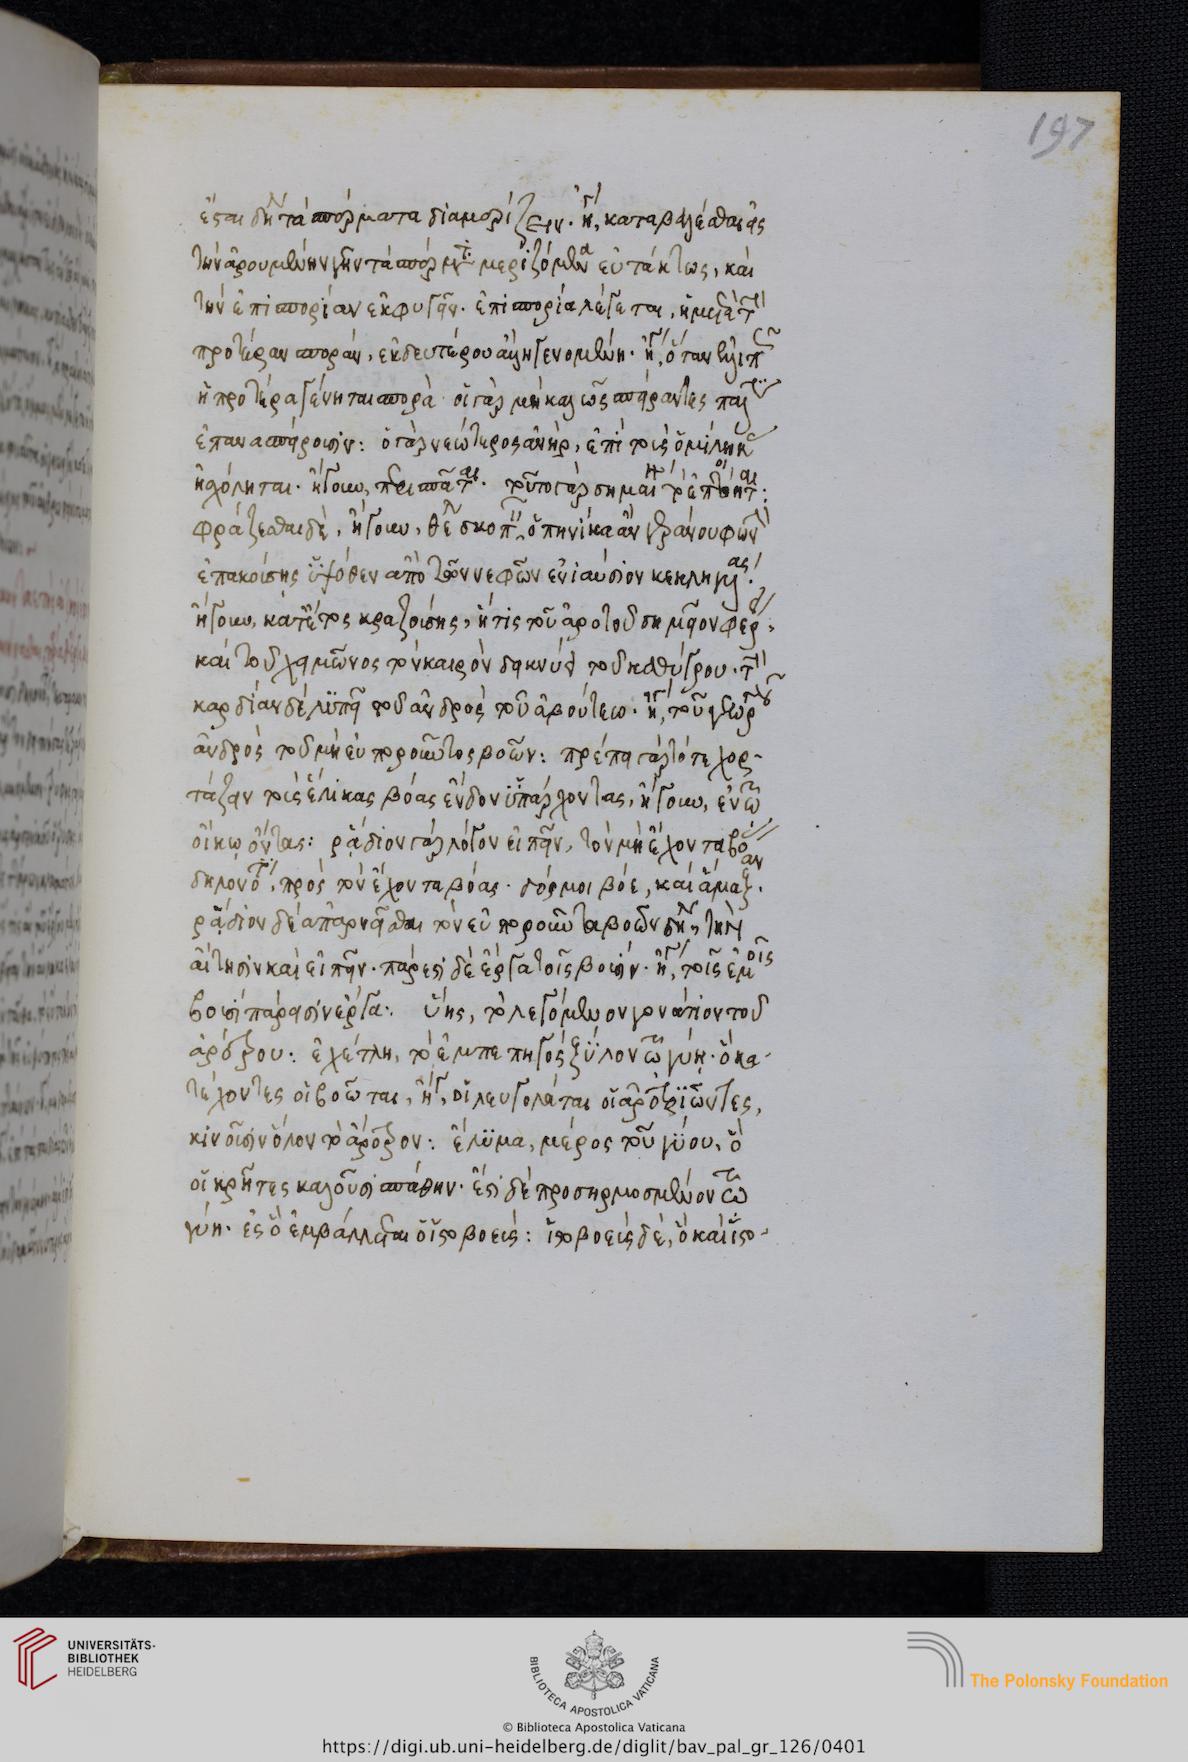 197
ἐστι δὲ τὰ σπέρματα διαμερίζειν. ἤγ, καταβαλέσθαι εἰς
τὴν ἀρουμένην γῆν τὰ σπέρμτ μεριζόμενα εὐτάκτως, καὶ
τὴν ἐπισπορίαν ἐκφυγεῖν. ἐπισπορία λέγεται, ἡ μετὰ τ
προτέραν σποράν, ἐκ δευτέρου αὖ γενομένη. ἤγ, ὅταν
ἡ προτέρα γένηται σπορὰ οἱ γὰρ μὴ καλῶς σπείραντες πάλ
ἐπανασπείρουσιν: ὁ γὰρ νεώτερος ἀνὴρ, ἐπὶ τοὺς ὁμήλικ
φράζεσθαι δὲ, ἤγουν, θε σκοπ, ὁπηνίκα ἂν γεράνου φων
ἐπακούσης ὑψόθεν ἀπὸ τῶν νεφῶν ἐνιαύσιον κεκληγυίας.
ἤγουν, κατ' ἔτος κραζούσης, ἥτις τοῦ ἀρότου σημεῖον φέρει,
καὶ τοῦ χειμῶνος τὸν καιρὸν δεικνύει τοῦ καθύγρου. τ
καρδίαν δὲ λυπεῖ τοῦ ἀνδρὸς τοῦ ἀβούτεω. ἤγ, τοῦ γεωργοῦ
ἀνδρὸς τοῦ μὴ εὐποροῦντος βοῶν: πρέπει γὰρ τότε χορ-
τάζειν τοὺς ἕλικας βόας ἔνδον ὑπάρχοντας, ἤγουν, ἐν τῶ
οἴκω ὄντας: ῥάδιον γὰρ λόγον εἰπεῖν, τὸν μὴ ἔχοντα βό
δηλονότ, πρὸς τὸν ἔχοντα βόας. δός μοι βόε, καὶ ἅμαξαν.
ῥάδιον δὲ ἀπαρνεῖσθαι τὸν εὐποροῦντα βοῶν δὲ, τὴν
αἴτησιν καὶ εἰπεῖν. πάρεστι δὲ ἔργα τοῖς βουσίν. ἤγ, τοῖς ἐμοῖς
βουσὶ πάρεισιν ἔργα:. ὕνης, τὸ λεγόμενον γονάτιον τοῦ
ἀρότρου:. ἐχέτλη, τὸ ἐμπεπηγὸς ξύλον τῶ γύη. ὃ κα-
τέχοντες οἱ βοῶται, ἤγ, οἱ ζευγολάται οἱ ἀροτριῶντες,
κινοῦσιν ὅλον τὸ ἄροτρον: ἔλυμα, μέρος τοῦ γύου, ὃ
οἱ κρῆτες καλοῦσι σπάθην. ἔστι δὲ προσηρμοσμένον τῶ
γύη. ἐς ὃ ἐμβάλλεται ὁ ἱστοβοεύς: ἱστοβοεὺς δὲ, ὃ καὶ ἱστο-
UNIVERSITÄTS-
BIBLIOTHEK
HEIDELBERG
BIBLIOTECA APOSTOLICA VATICANA
The Polonsky Foundation
© Biblioteca Apostolica Vaticana
https://digi.ub.uni-heidelberg.de/diglit/bav_pal_gr_126/0401